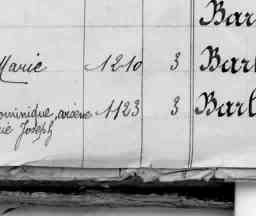 Bar
Marie 1210 3 Barl
ominique, arsène 1123 3 Barl
rie Joseph